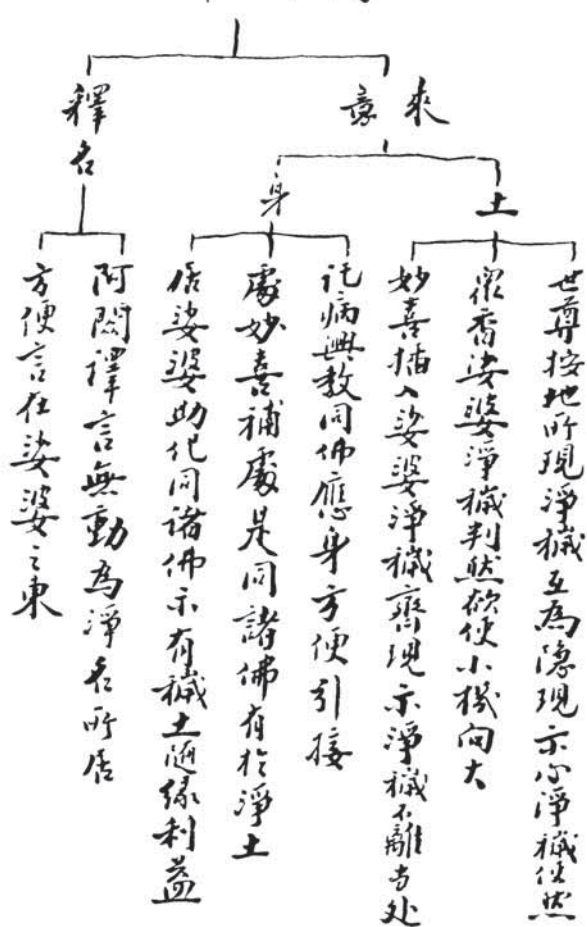 來意
土
世尊按地所現淨穢互為隱現示心淨穢使然
眾香娑婆淨穢判然欲使小機向大
妙喜插入娑婆淨穢齊現示淨穢不離当处
身
託病興教同佛應身方便引接
處妙喜補處是同諸佛有於淨土
居娑婆助化同諸佛示有穢土随緣利益
釋名
阿閦譯言無動為淨名所居
方便言在娑婆之東